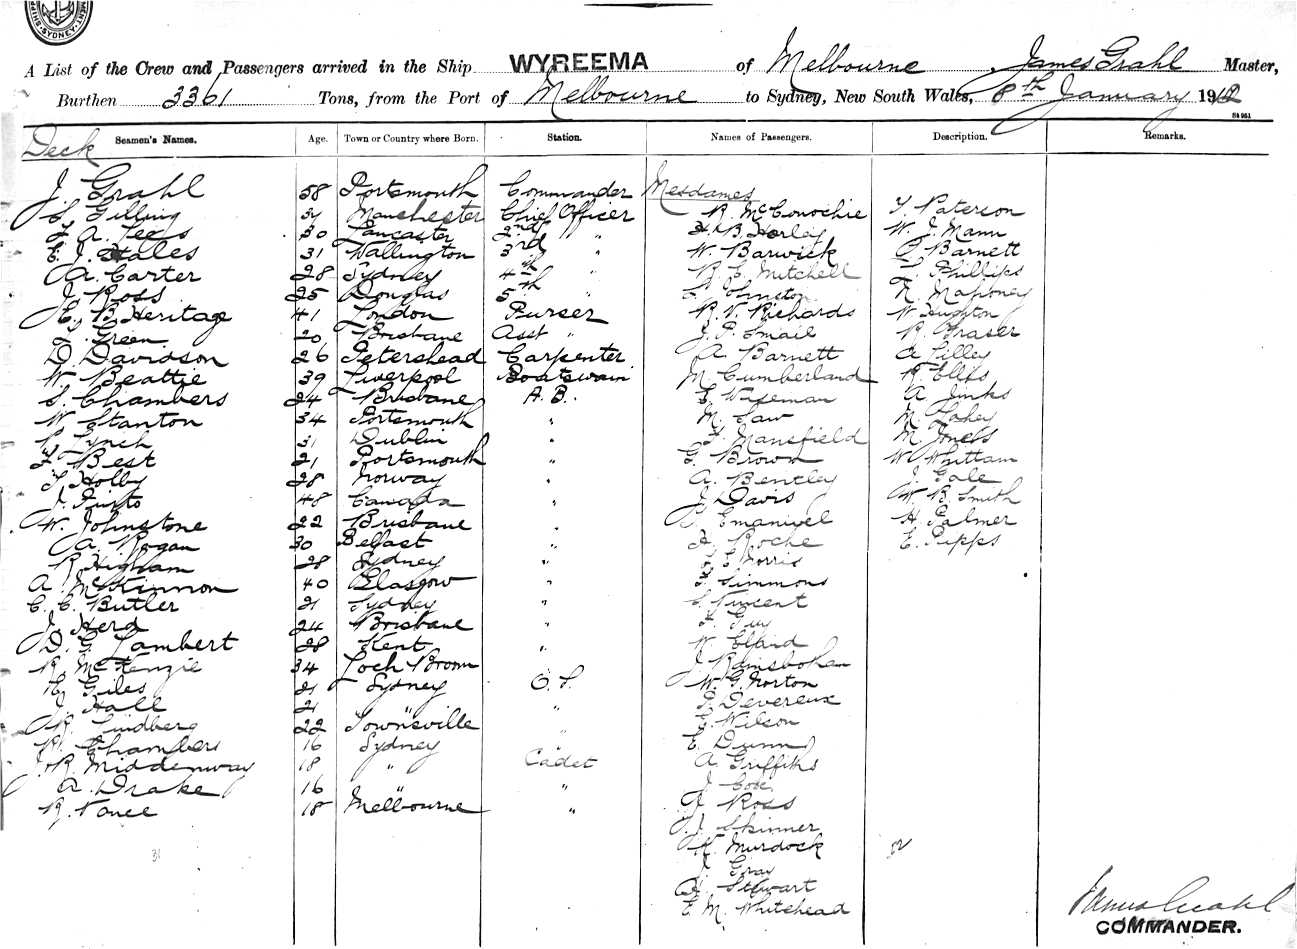 A List of the Crew and Passengers arrived in the Ship WYREEMA of Melbourne, James Grahl Master,
Burthen 3361 Tons, from the Port of Melbourne to Sydney, New South Wales, 8th January 1912
Seamen's Names. Age. Town or Country where Born. Station. Names of Passengers. Description. Remarks.
Deck
J. Grahl 58 Portsmouth Commander Mesdames
C. Gilling 34 Manchester Chief Officer R. McConochie T. Paterson
F. A. Lees 30 Lancaster 2nd " H. B. Horley W. J. Mann
E. J. Hales 31 Wallington 3rd " W. Barwick Barnett
A. Carter 28 Sydney 4th " R. E. Mitchell Phillips
J. Ross 25 Douglas 5th " Mahoney
H. B. Heritage 41 London Purser R. V. Richards W.
Green 20 Brisbane Asst " J. P. Smail R. Fraser
D. Davidson 26 Petershead Carpenter A. Barnett A. Lilley
W. Beattie 39 Liverpool Boatswain M. Cumberland R.
S. Chambers 24 Brisbane A. B. E. Wiseman A. Jinks
W. Stanton 34 Portsmouth " M. Law M.
Lynch 31 Dublin " Mansfield M. Jones
F. Best 21 Portsmouth " G. Brown W. Whittam
T. Holby 28 Norway " A. Bentley J. Gale
J. 48 Canada " J. Davis W. B. Smith
W. Johnstone 22 Brisbane " Emanuel H. Palmer
A. Rogan 30 Belfast " Roche E. Pipps
R. Higham 28 Sydney " E. Norris
A. McKinnon 40 Glasgow " F. Simmons
C. C. Butler 21 Sydney " Vincent
J. Herd 24 Brisbane " Guy
D. G. Lambert 28 Kent " W.
R. McKenzie 34 Loch Broom J.
H. Giles 21 Sydney O. S. W. G. Norton
J. Hall 21 " " Devereux
R. Lindberg 22 Townsville " Wilson
R. Chambers 16 Sydney " E. Dunn
J. R. Middenway 18 " Cadet A. Griffiths
A. Drake 16 " " J.
R. Vance 18 Melbourne " J. Ross
J. Skinner
31 K. Murdock 32
J. Gray
A. Stewart
E. M. Whitehead
James Grahl
COMMANDER.